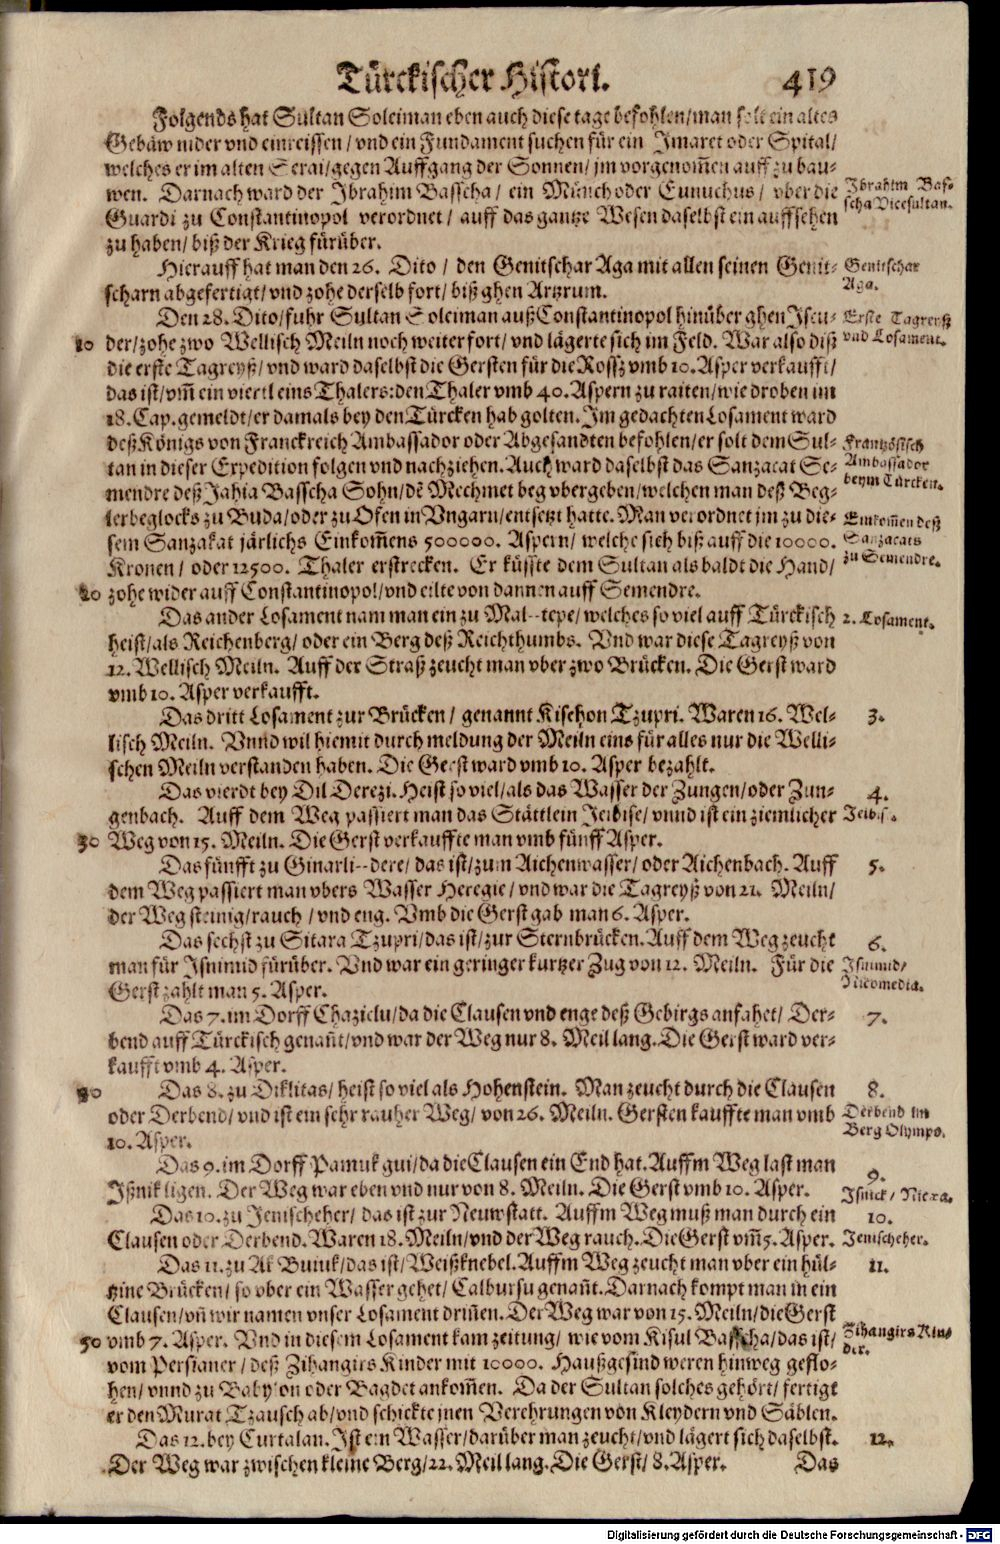 Türckischer Histori. 419
Folgends hat Sultan Soleiman eben auch diese tage befohlen/man solt ein altes
Gebäw nider vnd einreissen/ vnd ein Fundament suchen für ein Imaret oder Spital/
welches er im alten Serai/gegen Auffgang der Sonnen/ jm vorgenom̃en auff zu bau-
wen. Darnach ward der Ibrahim Basscha/ ein Münch oder Eunuchus/ vber die
Ibrahim Bas-
scha Vicesultan.
Guardi zu Constantinopol verordnet/ auff das gantze Wesen daselbst ein auffsehen
zu haben/ biß der Krieg fürüber.
Hierauff hat man den 26. Dito/ den Genitschar Aga mit allen seinen Genit-
Genitschar
Aga.
scharn abgefertigt/vnd zohe derselb fort/ biß ghen Artzrum.
Den 28. Dito/fuhr Sultan Soleiman auß Constantinopol hinüber ghen Iscu-
Erste Tagreyß
vnd Losament.
10 der/zohe zwo Wellisch Meiln noch weiter fort/ vnd lägerte sich im Feld. War also diß
die erste Tagreyß/ vnd ward daselbst die Gersten für die Rossz vmb 10. Asper verkaufft/
das ist/vm̃ ein viertl eins Thalers: den Thaler vmb 40. Aspern zu raiten/wie droben im
18. Cap. gemeldt/er damals bey den Türcken hab golten. Im gedachten Losament ward
deß Königs von Franckreich Ambassador oder Abgesandten befohlen/er solt dem Sul-
Frantzösisch
Ambassador
beym Türcken.
tan in dieser Expedition folgen vnd nachziehen. Auch ward daselbst das Sanzacat Se-
mendre deß Jahia Basscha Sohn/dẽ Mechmet beg vbergeben/welchen man deß Beg-
lerbeglocks zu Buda/oder zu Ofen in Vngarn/entsetzt hatte. Man verordnet jm zu die-
Einkom̃en deß
Sanzacats
zu Semendre.
sem Sanzakat järlichs Einkom̃ens 500000. Aspern/ welche sich biß auff die 10000.
Kronen/ oder 12500. Thaler erstrecken. Er küsste dem Sultan als baldt die Hand/
20 zohe wider auff Constantinopol/vnd eilte von dannen auff Semendre.
Das ander Losament nam man ein zu Mal--tepe/ welches so viel auff Türckisch
2. Losament.
heist/als Reichenberg/ oder ein Berg deß Reichthumbs. Vnd war diese Tagreyß von
12. Wellisch Meiln. Auff der Straß zeucht man vber zwo Brücken. Die Gerst ward
vmb 10. Asper verkaufft.
Das dritt Losament zur Brücken/ genannt Kischon Tzupri. Waren 16. Wel-
3.
lisch Meiln. Vnnd wil hiemit durch meldung der Meiln eins für alles nur die Welli-
schen Meiln verstanden haben. Die Gerst ward vmb 10. Asper bezahlt.
Das vierdt bey Dil Derezi. Heist so viel/als das Wasser der Zungen/oder Zun-
4.
genbach. Auff dem Weg passiert man das Stättlein Jeibise/ vnnd ist ein ziemlicher
Jeibis.
30 Weg von 15. Meiln. Die Gerst verkauffte man vmb fünff Asper.
Das fünfft zu Ginarli--dere/ das ist/zum Aichenwasser/oder Aichenbach. Auff
5.
dem Weg passiert man vbers Wasser Heregie/ vnd war die Tagreyß von 21. Meiln/
der Weg steinig/rauch/vnd eng. Vmb die Gerst gab man 6. Asper.
Das sechst zu Sitara Tzupri/das ist/zur Sternbrücken. Auff dem Weg zeucht
6.
man für Isnimid fürüber. Vnd war ein geringer kurtzer Zug von 12. Meiln. Für die
Isnimid/
Nicomedia.
Gerst zahlt man 5. Asper.
Das 7. im Dorff Chaziclu/da die Clausen vnd enge deß Gebirgs anfahet/ Der-
7.
bend auff Türckisch genañt/vnd war der Weg nur 8. Meil lang. Die Gerst ward ver-
kaufft vmb 4. Asper.
Das 8. zu Diklitas/ heist so viel als Hohenstein. Man zeucht durch die Clausen
8.
oder Derbend/ vnd ist ein sehr rauher Weg/ von 26. Meiln. Gersten kauffte man vmb
Derbend im
Berg Olympo.
10. Asper.
Das 9. im Dorff Pamuk gui/da die Clausen ein End hat. Auffm Weg last man
9.
Ißnik ligen. Der Weg war eben vnd nur von 8. Meiln. Die Gerst vmb 10. Asper.
Isnick/ Nicæa.
Das 10. zu Jenischeher/ das ist zur Neuwstatt. Auffm Weg muß man durch ein
10.
Clausen oder Derbend. Waren 18. Meiln/vnd der Weg rauch. Die Gerst vm̃ 5. Asper.
Jenischeher.
Das 11. zu Ak Buiuk/das ist/ Weißknebel. Auffm Weg zeucht man vber ein hül-
11.
tzine Brücken/ so vber ein Wasser gehet/ Calbursu genañt. Darnach kompt man in ein
Clausen/vñ wir namen vnser Losament drin̄en. Der Weg war von 15. Meiln/die Gerst
50 vmb 7. Asper. Vnd in diesem Losament kam zeitung/ wie vom Kisul Basscha/das ist/
Zihangirs Kin-
der.
vom Persianer/ deß Zihangirs Kinder mit 10000. Haußgesind weren hinweg geflo-
hen/ vnnd zu Babylon oder Bagdet ankom̃en. Da der Sultan solches gehört/ fertigt
er den Murat Tzausch ab/vnd schickte jnen Verehrungen von Kleydern vnd Säblen.
Das 12. bey Curtalan. Ist ein Wasser/darüber man zeucht/vnd lägert sich daselbst.
12.
Der Weg war zwischen kleine Berg/22. Meil lang. Die Gerst/ 8. Asper. Das
Digitalisierung gefördert durch die Deutsche Forschungsgemeinschaft - DFG